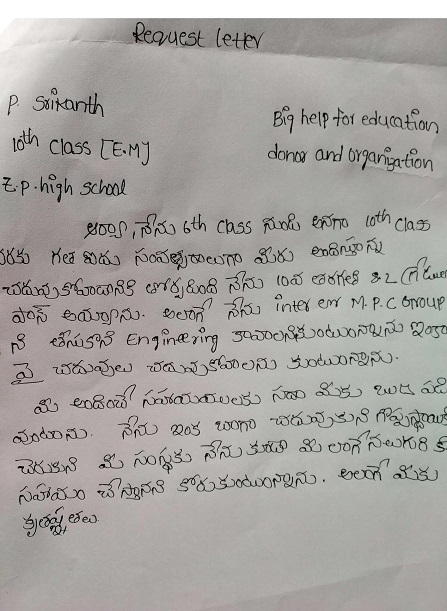 Request letter
P. Srikanth
10th class [E.M]
Z.P.high school
Big help for education
donor and organization
ఆర్యా, నేను 6th class నుండి అనగా 10th class
వరకు గత ఐదు సంవత్సరాలుగా మీరు
చదువుకోటానికి నేను 10వ తరగతి 8.2
పాస్ అయ్యాను. అలాగే నేను inter M.P.C Group
ని తీసుకొని Engineering కావాలనుకుంటున్నాను ఇంకా
పై చదువులు చదువుకోవాలను కుంటున్నాను.
మీ అందించే సహాయములకు సదా మీకు
వుంటాను. నేను ఇంక బాగా చదువుకుని
చేరుకుని మీ సంస్థకు నేను కూడా మీ లాగే నలుగురి కి
సహాయం చేస్తానని కోరుకుంటున్నాను. అలాగే మీకు
కృతజ్ఞతలు